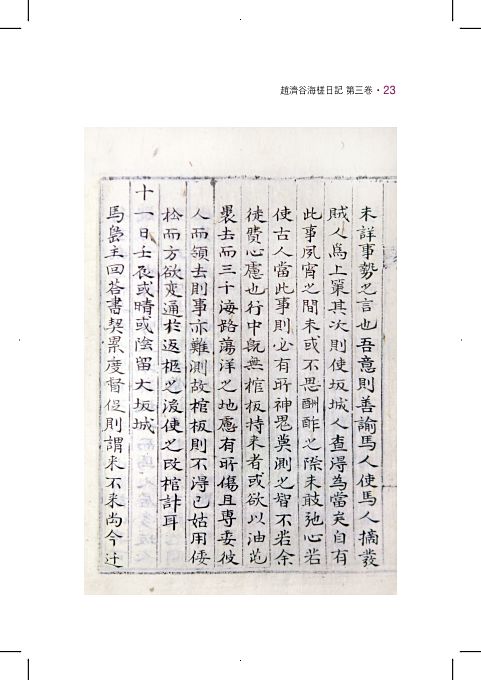 趙濟谷海槎日記 第三卷 · 23
未詳事勢之言也吾意則善諭馬人使馬人摘發
賊人爲上策其次則使坂城人查得為當矣自有
此事夙宵之間未或不思酬酢之際未敢弛心若
使古人當此事則必有所神鬼莫測之智不若余
徒費心慮也行中旣無棺板持来者或欲以油芚
裹去而三千海路蕩洋之地慮有所傷且專委彼
人而領去則事亦難測故棺板則不得已姑用倭
松而方欲変通於返柩之後使之改棺計耳
十一日壬辰或晴或陰留大坂城
馬島主回答書契累度督促則謂来不来尚今迁